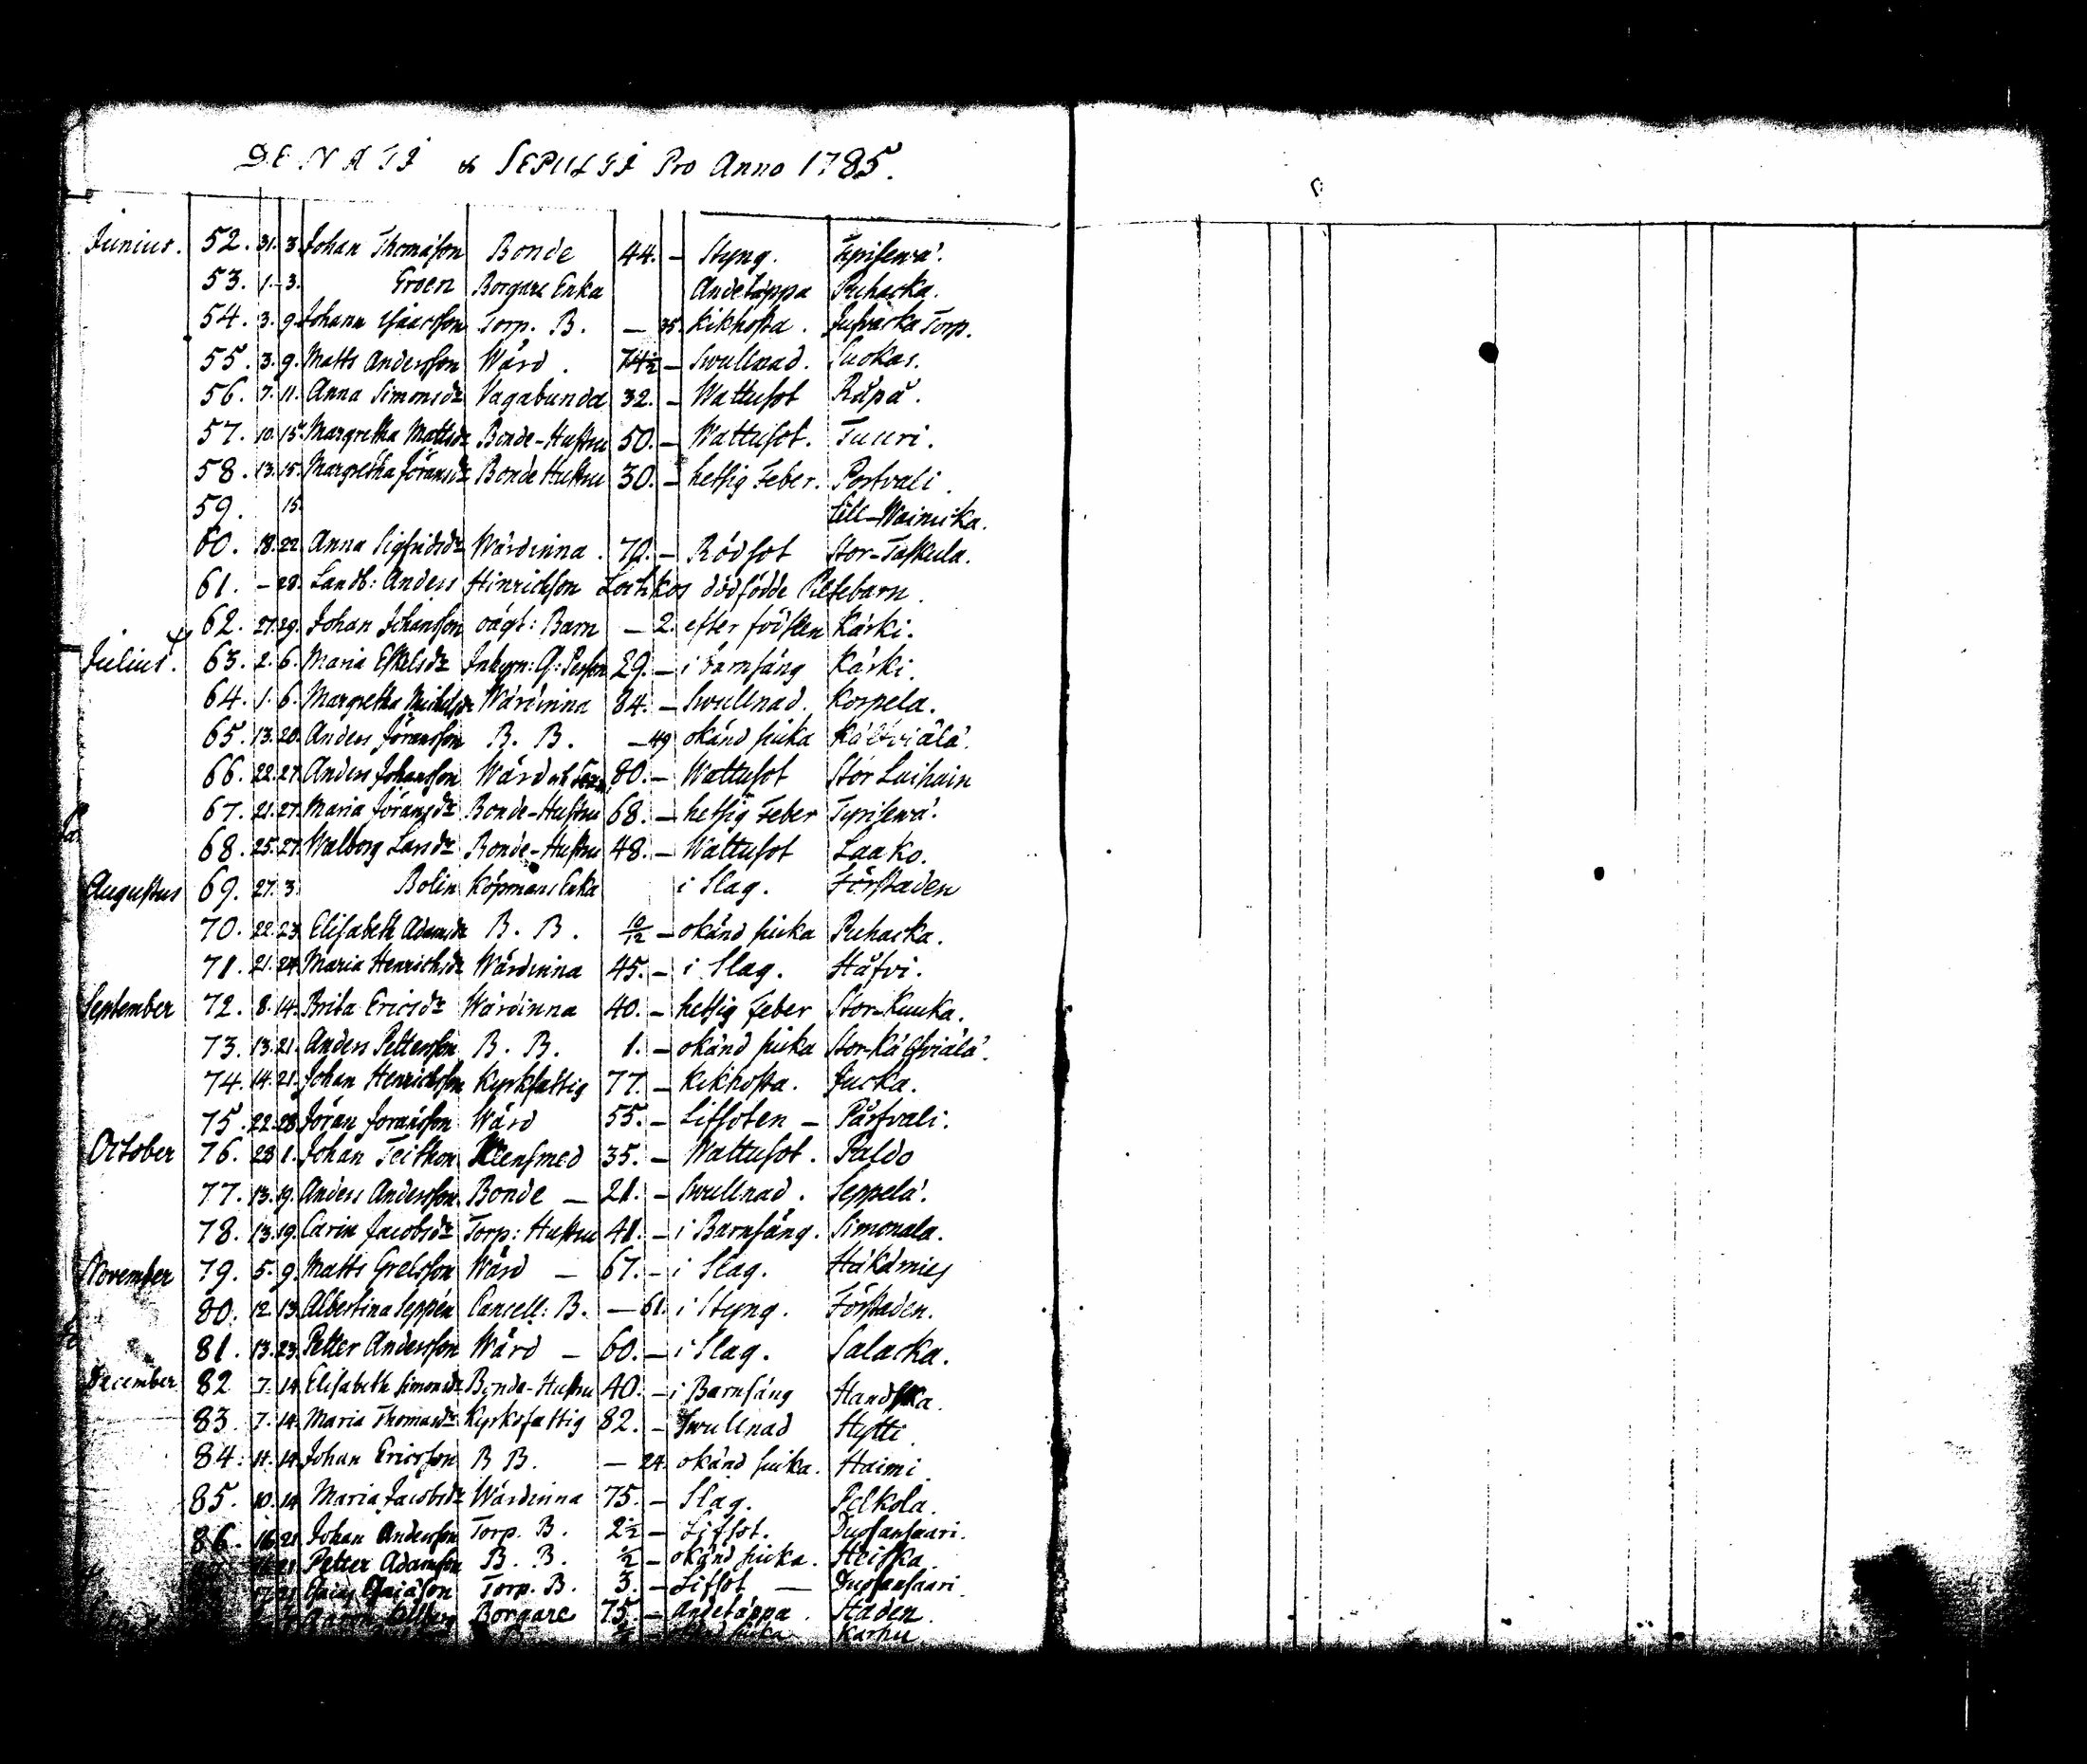 DENATI & SEPULTI Pro Anno 1785.
Junius. 52. 31. 3. Johan Thomasson Bonde 44. — Styng. Tyrisewä.
53. 1. 3. Groen Borgare Enka Andetäppa Puhacka.
54. 3. 9. Johann Isaacsson Torp. B. — 35. Kikhosta. Jusvacka Torp.
55. 3. 9. Matts Andersson Wärd. 74½ — Swullnad. Suokas.
56. 7. 11. Anna Simonsdr Vagabunda 32. — Wattusot Räpä.
57. 10. 15. Margretha Mattsdr Bonde-Hustru 50. — Wattusot. Tuuri.
58. 13. 15. Margretha Jöransdr Bonde Hustru 30. — hetsig Feber. Postvali.
59. 15. Lill-Wainicka.
60. 18. 22. Anna Sigfridsdr Wärdinna. 70. — Rödsot Stor-Taskula.
61. — 28. Landb: Anders Hinrichson Lochkos dödfödde Piltebarn.
62. 27. 29. Johan Johansson oägt: Barn — 2. efter födslen Kärki.
Julius. 63. 2. 6. Maria Eskelsdr Inhysn: Q: Person 29. — i barnsäng Kärki.
64. 1. 6. Margretha Michelsdr Wärdinna 84. — Swullnad. Korpela.
65. 13. 20. Anders Jöransson B. B. — 49 okänd siuka Kälfviälä.
66. 22. 27. Anders Johansson Wärd 80. — Wattusot Stor Luihain
67. 21. 27. Maria Jöransdr Bonde-Hustru 68. — hetsig Feber Tyrisewä.
68. 25. 27. Walborg Larsdr Bonde-Hustru 48. — Wattusot Laako.
Augustus 69. 27. 3. Bolin Köpmans Enka i Slag. Förstaden
70. 22. 23. Elisabeth Adamsdr B. B. 10/12 — okänd siuka Puhacka.
71. 21. 24. Maria Henrichsdr Wärdinna 45. — i Slag. Häfvi.
September 72. 8. 14. Brita Ericsdr Wärdinna 40. — hetsig Feber Stor-Kuuka.
73. 13. 21. Anders Pettersson B. B. 1. — okänd siuka Stor-Kälfviälä.
74. 14. 21. Johan Henrichsson Kyrkfattig 77. — Kikhosta. Jucka.
75. 22. 28. Jöran Joransson Wärd 55. — Lifsoten — Påstvali.
October 76. 28. 1. Johan Teithon Klensmed 35. — Wattusot. Paldo
77. 13. 19. Anders Andersson Bonde — 21. — Swullnad. Seppelä.
78. 13. 19. Carin Jacobsdr Torp: Hustru 41. — i Barnsäng. Simonala.
November 79. 5. 9. Matts Grelsson Wärd — 67. — i Slag. Häkämies
80. 12. 13. Albertina Seppén Cancell: B. — 61. i Styng. Förstaden.
81. 13. 23. Petter Andersson Wärd — 60. — i Slag. Salacka.
December 82 7. 14. Elisabeth Simonsdr Bonde-Hustru 40. — i Barnsäng Handska.
83. 7. 14. Maria Thomasdr Kyrkofattig 82. — Swullnad Hytti.
84. 11. 14. Johan Ericsson B B. — 24. okänd siuka. Haimi.
85. 10. 14. Maria Jacobsdr Wärdinna 75. — Slag. Pelkola.
86. 16. 21. Johan Andersson Torp. B. 2½ — Lifsot. Suosansaari.
Petter Adamsson B. B. ½ — okänd siuka. Heiska.
Torp. B. 3. — Lifsot — Suosansaari.
Borgare 75. — Andetäppa. Staden.
siuka Karhu